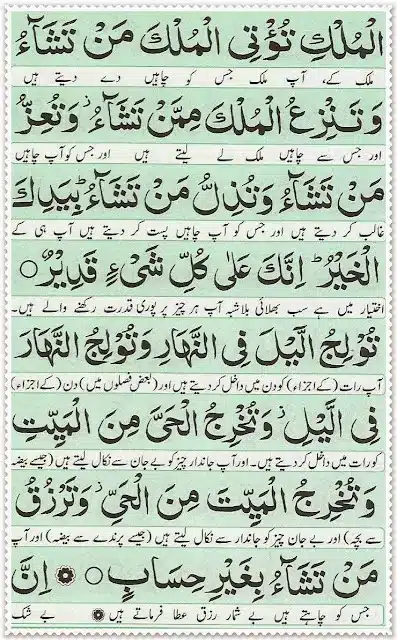 الْمُلْكِ تُؤْتِی الْمُلْكَ مَنْ تَشَآءُ
ملک کے، آپ ملک جس کو چاہیں دے دیتے ہیں
وَ تَنْزِعُ الْمُلْكَ مِمَّنْ تَشَآءُ ۫ وَ تُعِزُّ
اور جس سے چاہیں ملک لے لیتے ہیں اور جس کو آپ چاہیں
مَنْ تَشَآءُ وَ تُذِلُّ مَنْ تَشَآءُ ؕ بِیَدِكَ
غالب کر دیتے ہیں اور جس کو آپ چاہیں پست کر دیتے ہیں آپ ہی کے
الْخَیْرُ ؕ اِنَّكَ عَلٰی كُلِّ شَیْءٍ قَدِیْرٌ ○
اختیار میں ہے سب بھلائی بلاشبہ آپ ہر چیز پر پوری قدرت رکھنے والے ہیں۔
تُوْلِجُ الَّیْلَ فِی النَّهَارِ وَ تُوْلِجُ النَّهَارَ
آپ رات (کے اجزاء) کو دن میں داخل کر دیتے ہیں اور (بعض فصلوں میں) دن (کے اجزاء)
فِی الَّیْلِ ۫ وَ تُخْرِجُ الْحَیَّ مِنَ الْمَیِّتِ
کو رات میں داخل کر دیتے ہیں۔ اور آپ جاندار چیز کو بے جان سے نکال لیتے ہیں (جیسے بیضہ
وَ تُخْرِجُ الْمَیِّتَ مِنَ الْحَیِّ ۫ وَ تَرْزُقُ
سے بچہ) اور بے جان چیز کو جاندار سے نکال لیتے ہیں (جیسے پرندے سے بیضہ) اور آپ
مَنْ تَشَآءُ بِغَیْرِ حِسَابٍ ○ اِنَّ
جس کو چاہتے ہیں بے شمار رزق عطا فرماتے ہیں بے شک